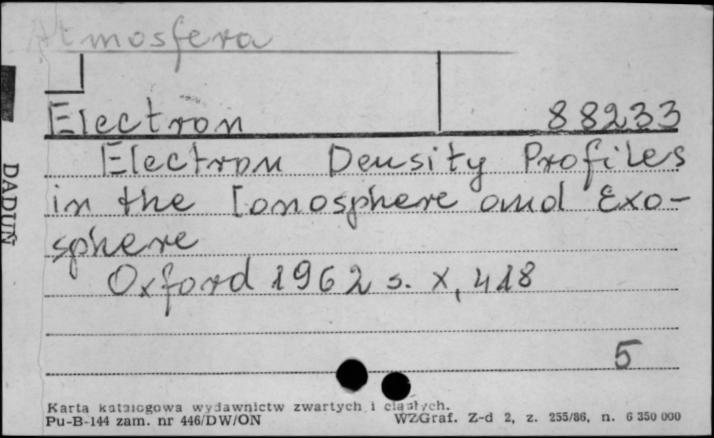 Atmosfera
Electron 88233
Electron Density Profiles
in the Ionosphere and Exo-
sphere
Oxford 1962 s. X, 418
5
DADUŃ
Karta katalogowa wydawnictw zwartych i ciągłych.
Pu-B-144 zam. nr 446/DW/ON WZGraf. Z-d 2, z. 255/86, n. 6 350 000